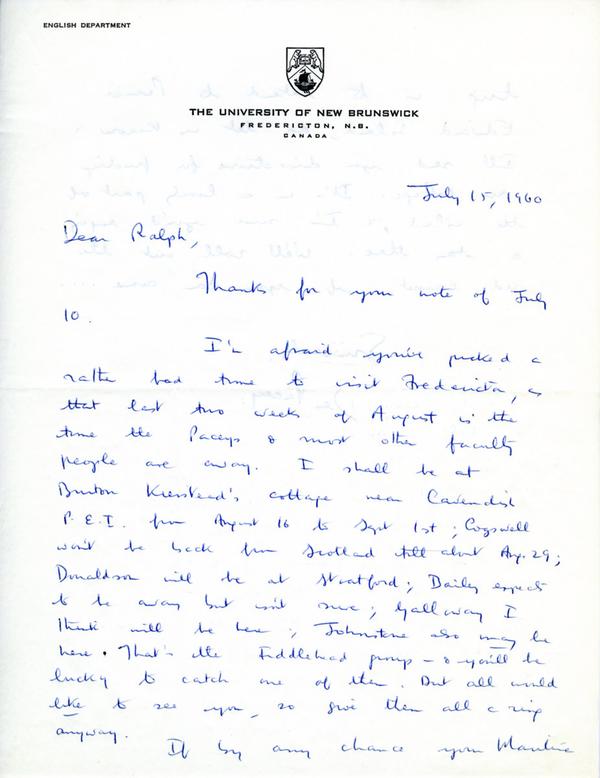 ENGLISH DEPARTMENT
THE UNIVERSITY OF NEW BRUNSWICK
FREDERICTON, N.B.
CANADA
July 15, 1960
Dear Ralph,
Thanks for your note of July
10.
I'm afraid you've picked a
rather bad time to visit Fredericton, as
that last two weeks of August is the
time the Paceys & most other faculty
people are away. I shall be at
Burton Kierstead's cottage near Cavendish
P.E.I. from August 16 to Sept 1st; Cogswell
won't be back from Scotland till about Aug. 29;
Donaldson will be at Stratford; Bailey expects
to be away but isn't sure; Galloway I
think will be here; Johnstone also may be
here. That's the Fiddlehead group - & you'll be
lucky to catch one of them. But all would
like to see you, so give them all a ring
anyway.
If by any chance your Maritime